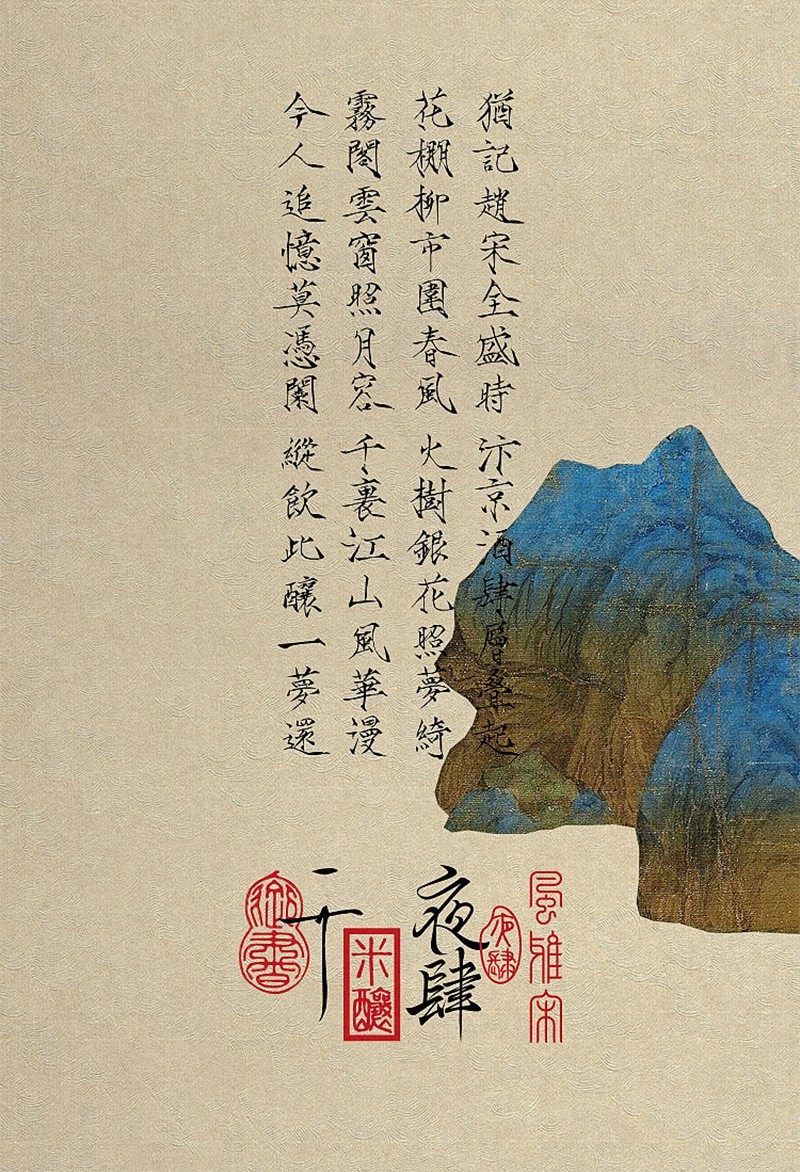 猶記趙宋全盛時 汴京酒肆層疊起
花棚柳市圍春風 火樹銀花照夢綺
霧閣雲窗照月容 千裏江山風華漫
今人追憶莫憑闌 縱飲此釀一夢還
風雅宋
夜肆
夜肆
米釀